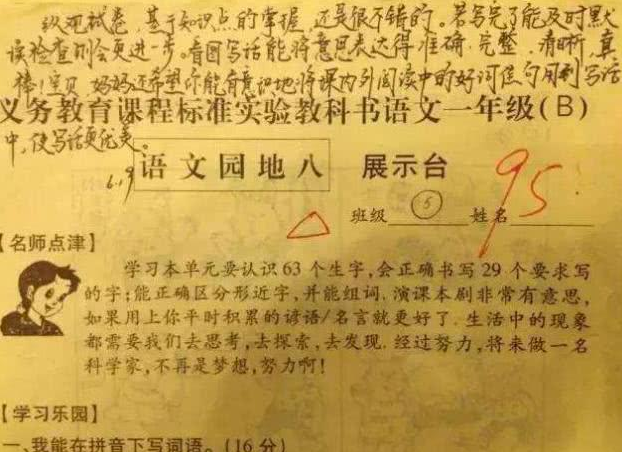 纵观试卷,基于知识点的掌握,还是很不错的。若写完了能及时默
读检查则会更进一步。看图写话能将意思表达得准确、完整、清晰,真
棒!宝贝,妈妈还希望你能有意识地将课内外阅读中的好词佳句用到写话
义务教育课程标准实验教科书语文一年级(B)
中,使写话更优美。
6.19
语文园地八 展示台
95
班级 ⑤ 姓名
【名师点津】
学习本单元要认识63个生字,会正确书写29个要求写
的字;能正确区分形近字,并能组词.演课本剧非常有意思,
如果用上你平时积累的谚语/名言就更好了.生活中的现象
都需要我们去思考,去探索,去发现.经过努力,将来做一名
科学家,不再是梦想,努力啊!
【学习乐园】
一、我能在拼音下写词语。(16分)